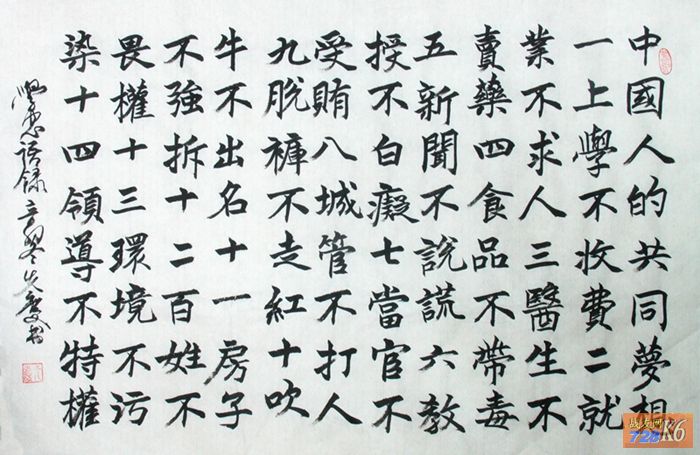 中國人的共同夢想
一上學不收費二就
業不求人三醫生不
賣藥四食品不帶毒
五新聞不說謊六教
授不白癡七當官不
受賄八城管不打人
九脫褲不走紅十吹
牛不出名十一房子
不強拆十二百姓不
畏權十三環境不污
染十四領導不特權
语録
战友网
728
K6